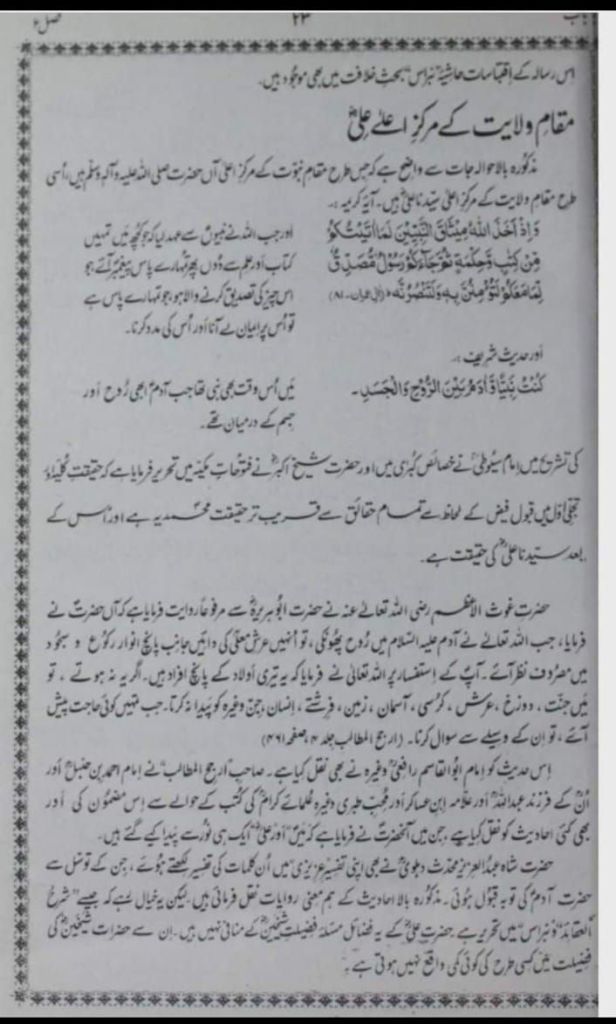 باب ۲۳ فصل ۲
اس رسالہ کے اقتباسات حاشیہ "نبراس" بحث خلافت میں بھی موجود ہیں۔
مقامِ ولایت کے مرکزِ اعلےٰ علیؓ
مذکورہ بالا حوالہ جات سے واضح ہے کہ جس طرح مقامِ نبوّت کے مرکزِ اعلیٰ آں حضرت صلی اللہ علیہ وآلہٖ وسلّم ہیں، اُسی
طرح مقامِ ولایت کے مرکزِ اعلیٰ سیّدنا علیؓ ہیں۔ آیۂ کریمہ :۔
وَاِذْ اَخَذَ اللّٰهُ مِيْثَاقَ النَّبِيّٖنَ لَمَا اٰتَيْتُكُمْ
مِّنْ كِتٰبٍ وَّحِكْمَةٍ ثُمَّ جَآءَكُمْ رَسُوْلٌ مُّصَدِّقٌ
لِّمَا مَعَكُمْ لَتُؤْمِنُنَّ بِهٖ وَلَتَنْصُرُنَّهٗ (آل عمران۔ ۸۱)
اور جب اللہ نے نبیوں سے عہد لیا کہ جو کچھ مَیں تمہیں
کتاب اور علم سے دُوں پھر تمہارے پاس پیغمبر آئے جو
اس چیز کی تصدیق کرنے والا ہو جو تمہارے پاس ہے
تو اُس پر ایمان لے آنا اور اُس کی مدد کرنا۔
اور حدیث شریف :۔
كُنْتُ نَبِيًّا وَّاٰدَمُ بَيْنَ الرُّوْحِ وَالْجَسَدِ۔
مَیں اُس وقت بھی نبی تھا جب آدمؑ ابھی رُوح اور
جسم کے درمیان تھے۔
کی تشریح میں امام سیُوطیؒ نے خصائصِ کبریٰ میں اور حضرت شیخِ اکبرؒ نے فتوحاتِ مکیّہ میں تحریر فرمایا ہے کہ حقیقتِ کلیہ اور
تجلّیِ اوّل میں قبولِ فیض کے لحاظ سے تمام حقائق سے قریب تر حقیقتِ محمدیہ ہے اور اس کے
بعد سیّدنا علیؓ کی حقیقت ہے۔
حضرت غوث الاعظم رضی اللہ تعالےٰ عنہ نے حضرت ابوہریرہؓ سے مرفوعاً روایت فرمایا ہے کہ آں حضرتؐ نے
فرمایا، جب اللہ تعالےٰ نے آدم علیہ السّلام میں رُوح پھونکی، تو اُنہیں عرشِ معلّیٰ کی دائیں جانب پانچ انوار رکُوع و سجُود
میں مصرُوف نظر آئے۔ آپؑ کے استفسار پر اللہ تعالیٰ نے فرمایا کہ یہ تیری اَولاد کے پانچ افراد ہیں۔ اگر یہ نہ ہوتے ، تو
مَیں جنّت ، دوزخ ، عرش ، کُرسی ، آسمان ، زمین ، فرشتے ، اِنسان ،جِنّ وغیرہ کو پَیدا نہ کرتا۔ جب تمہیں کوئی حاجت پیش
آئے ، تو اِن کے وسیلے سے سوال کرنا۔ (ارجح المطالب جلد ۴، صفحہ ۴۶۱)
اِس حدیث کو امام ابُوالقاسم رافعیؒ وغیرہ نے بھی نقل کیا ہے۔ صاحب "ارجح المطالب" نے امام احمد بن حنبلؒ اور
اُن کے فرزند عبداللہؒ اور علّامہ ابنِ عساکر اور محبّ طبری وغیرہ عُلمائے کرامؒ کی کُتب کے حوالے سے اِس مضمُون کی اور
بھی کئی احادیث کو نقل کیا ہے ، جن میں آنحضرتؐ نے فرمایا ہے کہ مَیں اور علیؓ ایک ہی نُور سے پَیدا کیے گئے ہیں۔
حضرت شاہ عبدالعزیز محدّث دہلویؒ نے بھی اپنی تفسیر عزیزی میں اُن کلمات کی تفسیر لکھتے ہُوئے ، جن کے توسّل سے
حضرت آدمؑ کی توبہ قبُول ہُوئی۔ مذکورہ بالا احادیث کے ہم معنی روایات نقل فرمائی ہیں۔ لیکن یہ خیال رہے کہ جیسے "شرح
العقائد" و "نبراس" میں تحریر ہے۔ حضرت علیؓ کے یہ فضائل مسئلہ فضیلتِ شیخینؓ کے منافی نہیں ہیں۔ اِن سے حضرات شیخینؓ کی
فضیلت میں کسی طرح کی کوئی کمی واقع نہیں ہوتی ہے۔